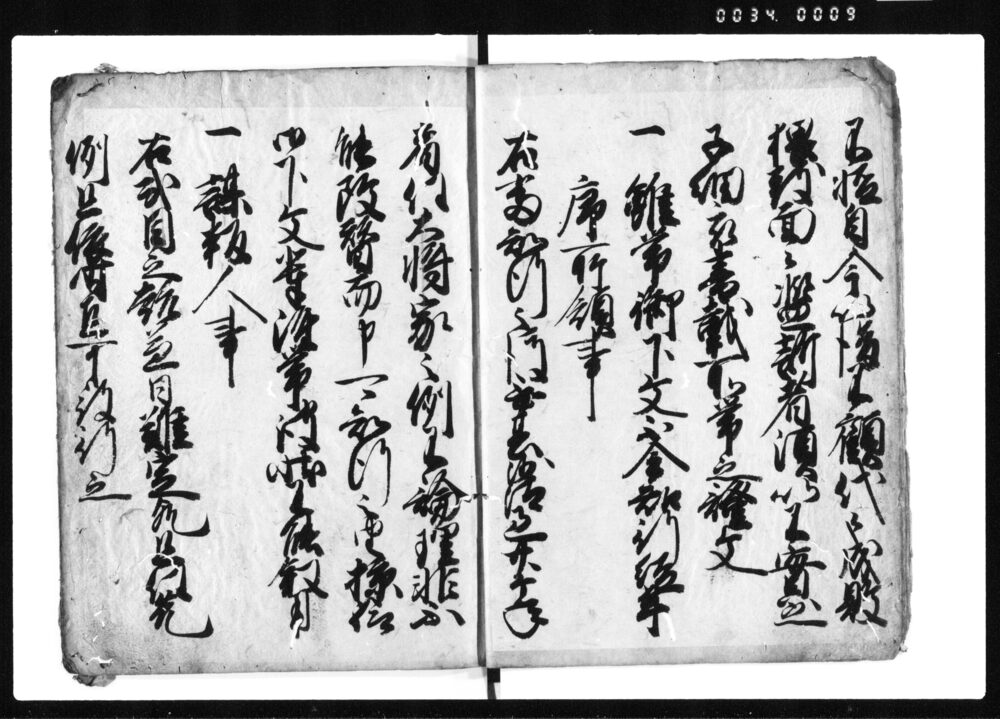 自今以後不顧代々成敗
猥致面々濫訴者須以不實之
子細被書載所帯之證文
一 雖帯御下文不令知行経年
序所領事
右当知行之後過廿ヶ年
者任大将家之例不論理非不
能改替而申知行之由掠給
御下文輩雖帯彼状不能叙用
一 謀叛人事
右式目之趣兼日難定歟且任先
例且依時宜可被行之
0034 0009